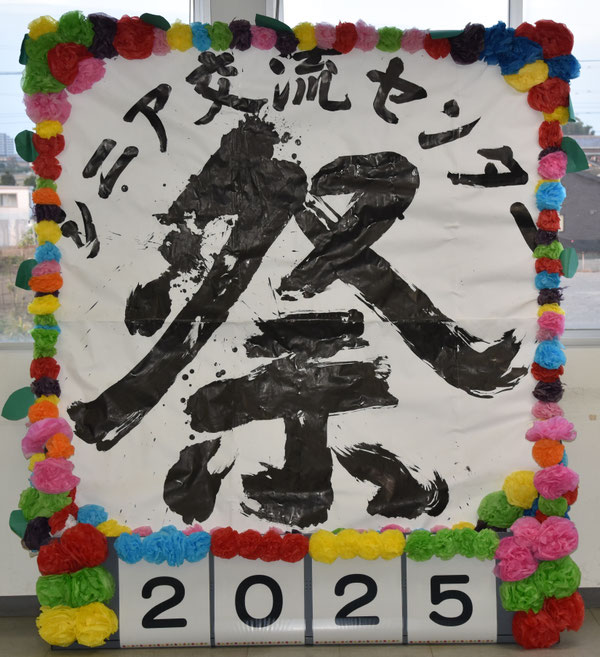 シニア交流センター
祭
2025